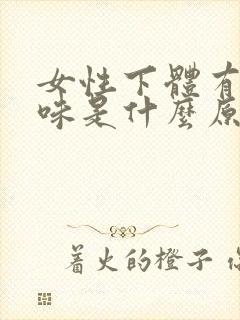 女性下體有
味是什麼原
著火的橙子